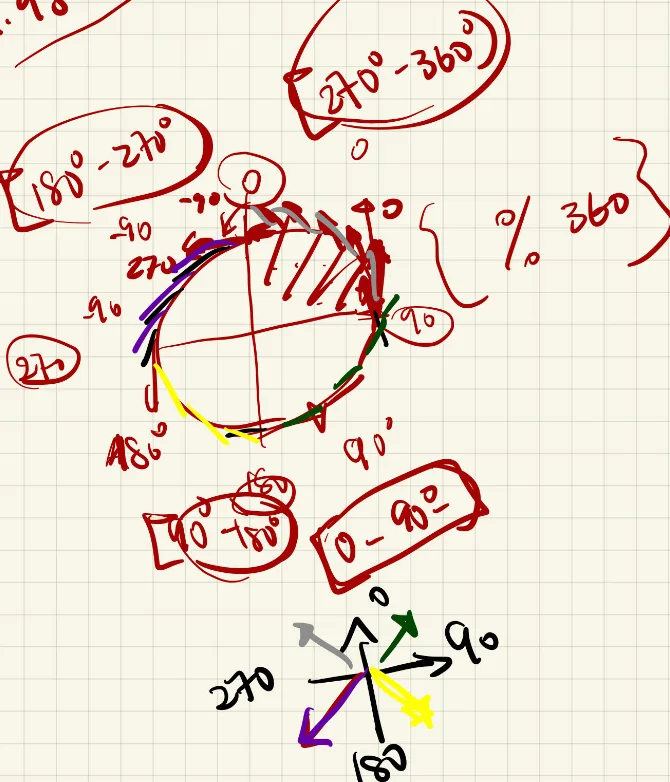 90
270° - 360°
180° - 270°
0
0
-90
-90
0
% 360
270
-90
90
270
180°
90°
180
90° - 180°
0 - 90°
0
90
270
180